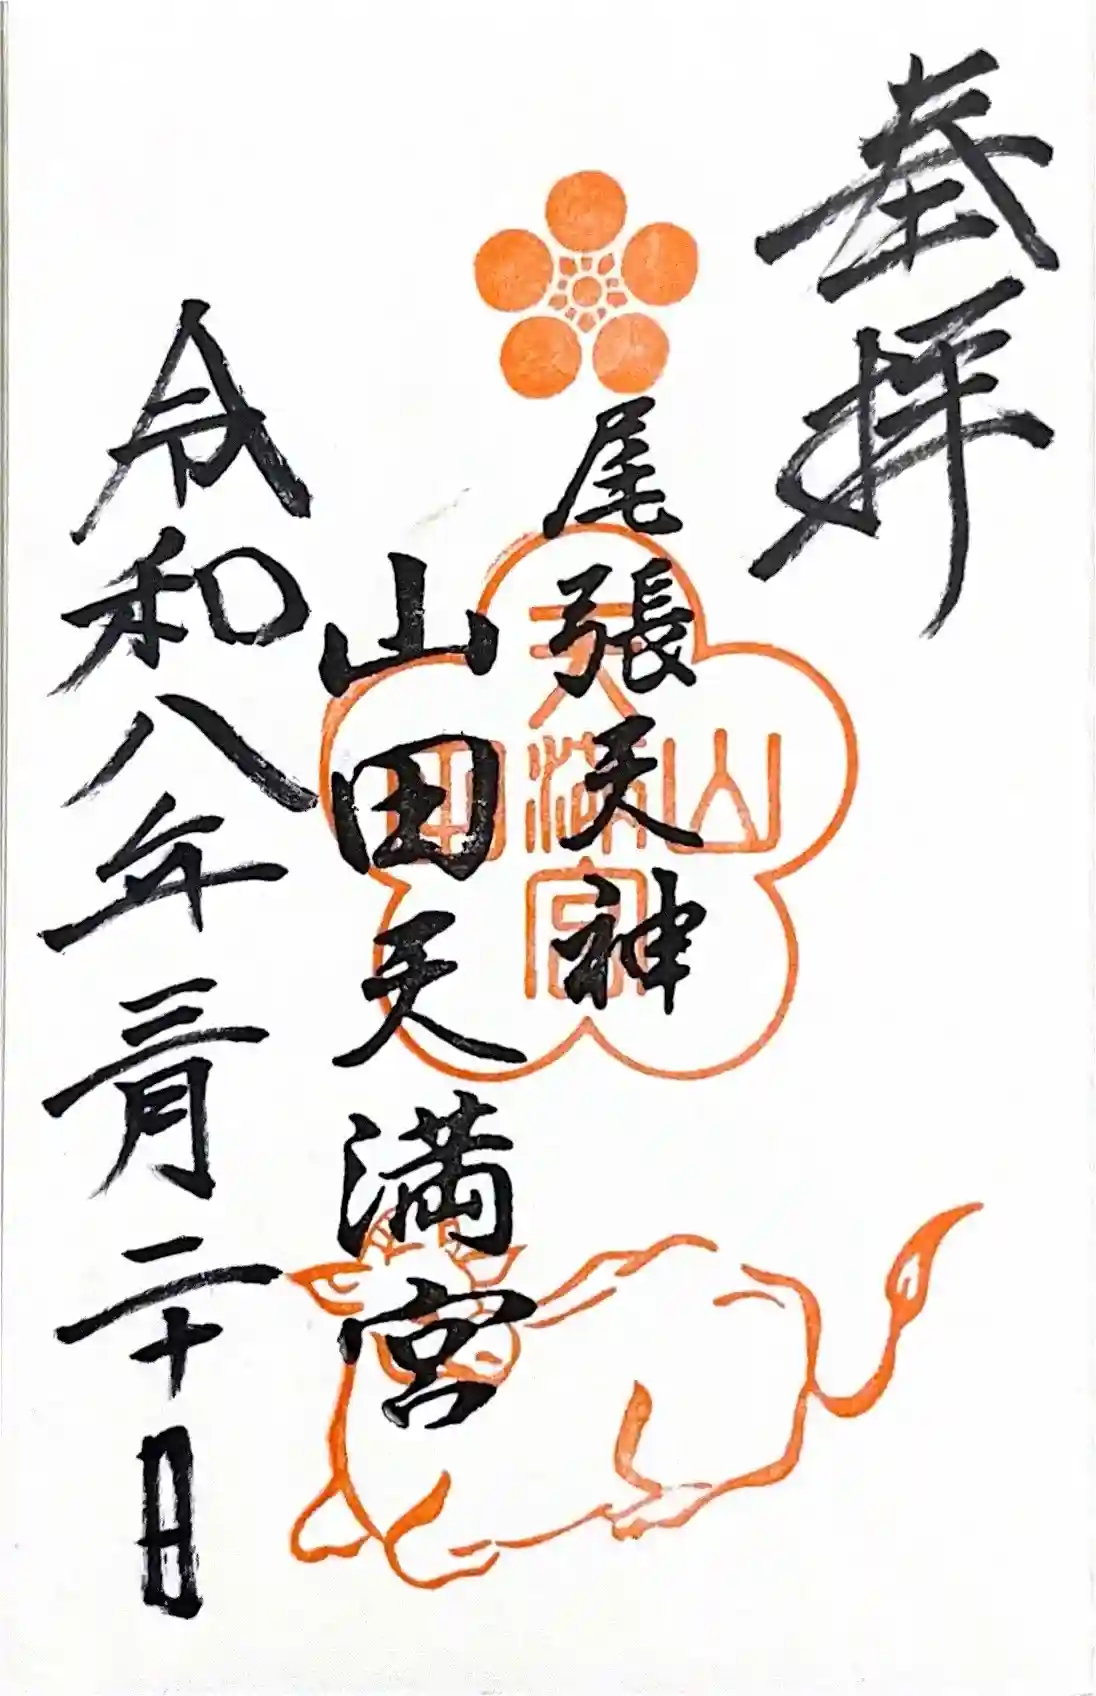 奉拝
尾張天神
山田天満宮
令和八年三月二十日
山田
天満宮